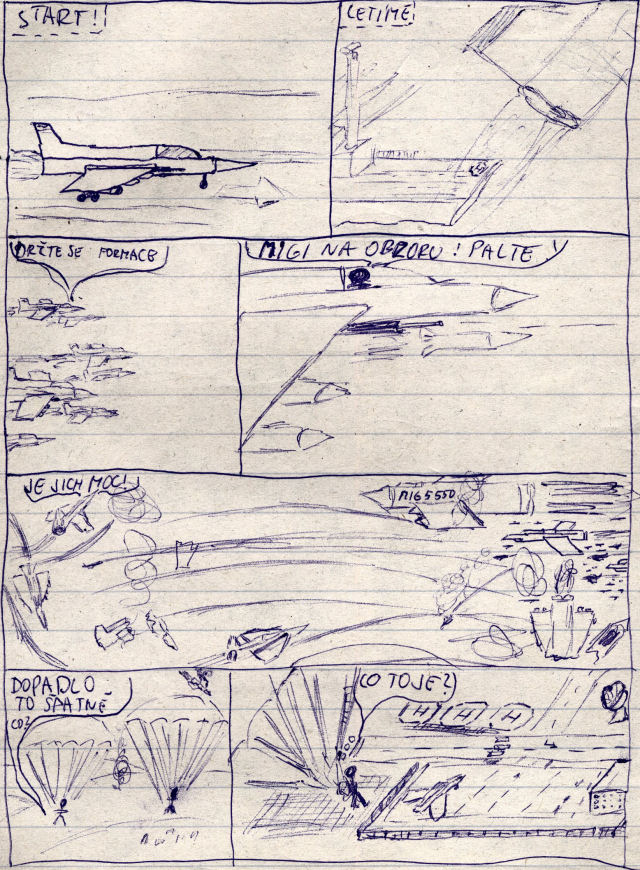 START!!
LETÍME!
DRŽTE SE FORMACE
MIGI NA OBZORU! PALTE!
JE JICH MOC!
MIG5550
DOPADLO
TO ŠPATNĚ
CO?
CO TO JE?
H H H